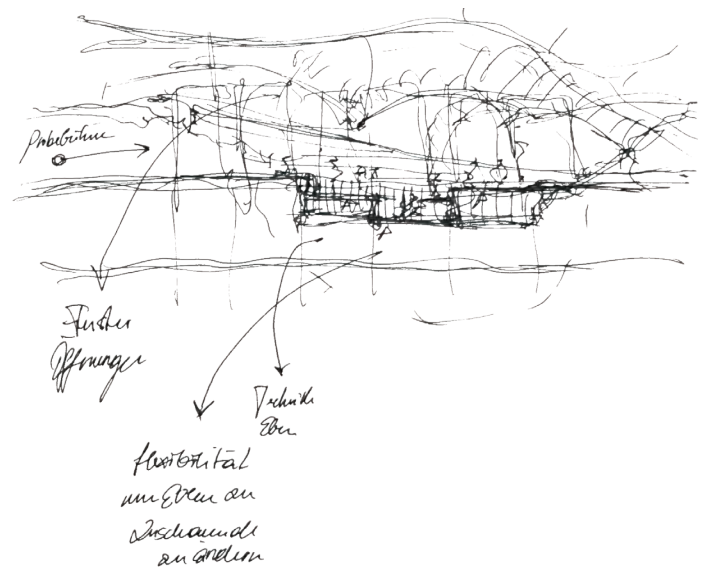 Probebühne
Fenster
Öffnungen
Technik
Eben
flexibilität
um Eben an
Zuschauende